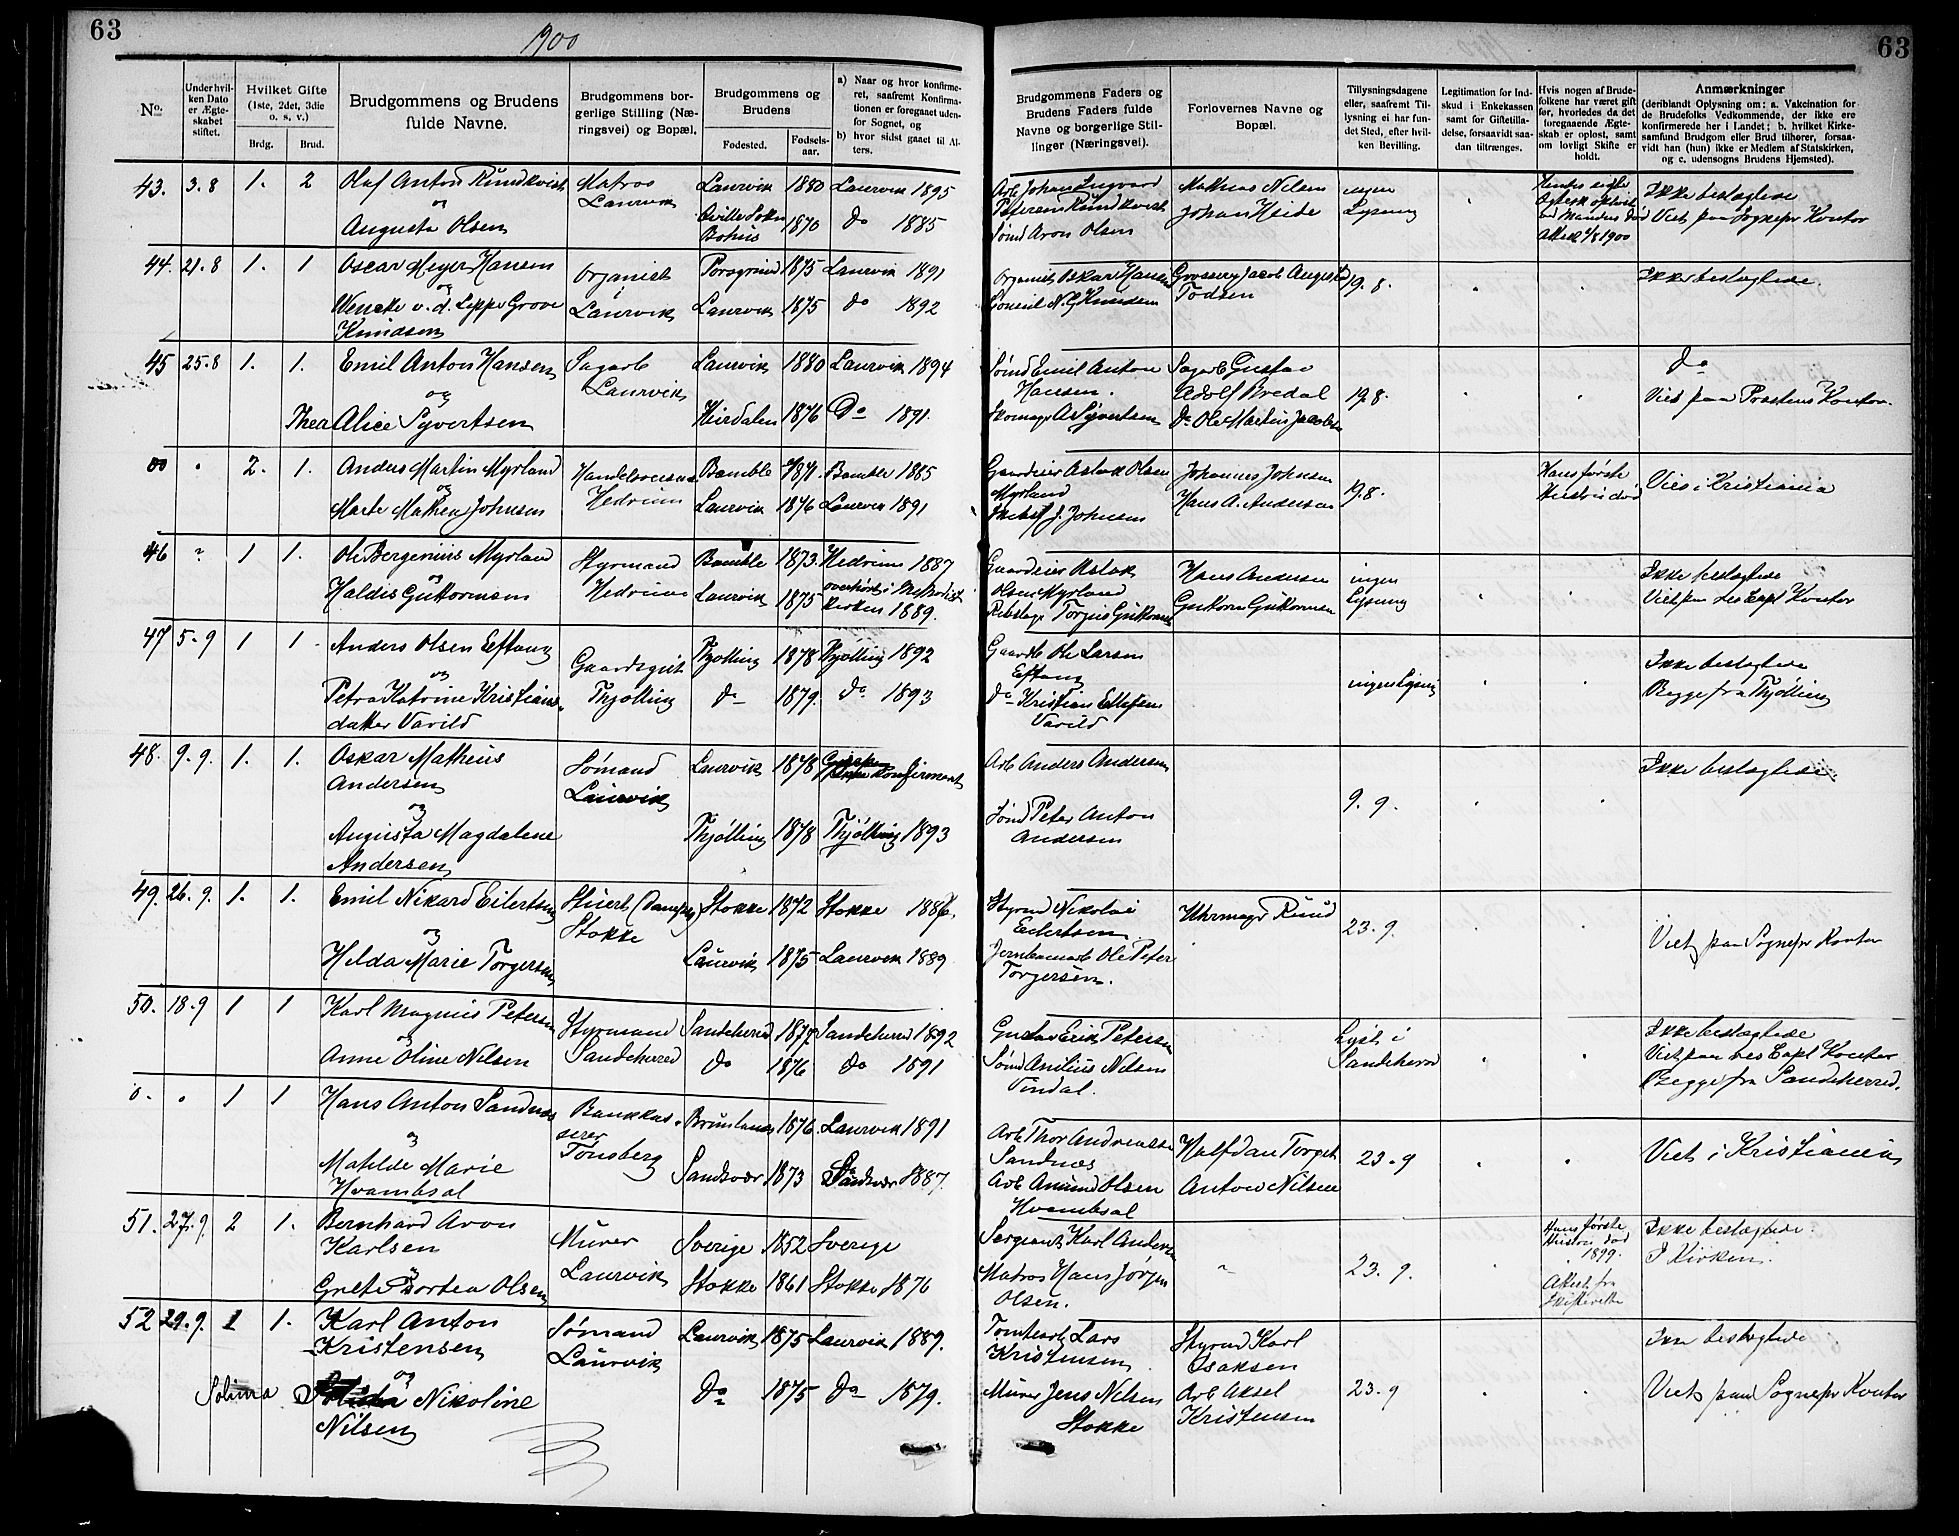 63
1900
63
No.
Under hvil-
ken Dato
er Ægte-
skabet
stiftet.
Hvilket Gifte
(1ste, 2det, 3die
o. s. v.)
Brdg.
Brud.
Brudgommens og Brudens
fulde Navne.
Brudgommens bor-
gerlige Stilling (Næ-
ringsvei) og Bopæl.
Brudgommens og
Brudens
Fødested.
Fødsels-
aar.
a) Naar og hvor konfirme-
ret, saafremt Konfirma-
tionen er foregaaet uden-
for Sognet, og
b) hvor sidst gaaet til Al-
ters.
Brudgommens Faders og
Brudens Faders fulde
Navne og borgerlige Stil-
linger (Næringsvei).
Forlovernes Navne og
Bopæl.
Tillysningsdagene
eller, saafremt Til-
lysning ei har fun-
det Sted, efter hvil-
ken Bevilling.
Legitimation for Ind-
skud i Enkekassen
samt for Giftetilla-
delse, forsaavidt saa-
dan tiltrænges.
Hvis nogen af Brude-
folkene har været gift
før, hvorledes da det
foregaaende Ægte-
skab er opløst, samt
om lovligt Skifte er
holdt.
Anmærkninger
(deriblandt Oplysning om: a. Vakcination for
de Brudefolks Vedkommende, der ikke ere
konfirmerede her i Landet; b. hvilket Kirke-
samfund Brudgom eller Brud tilhører, forsaa-
vidt han (hun) ikke er Medlem af Statskirken,
og c. udensogns Brudens Hjemsted).
43. 3.8 1. 2 Olaf Anton Rundkvist Matros Laurvik 1880 Laurvik 1895
og Laurvik
Augusta Olsen Bohus 1870 do 1885
Arb. Johan Ingvard Mathias Nilsen ingen Ikke beslægtede
Petersen Rundkvist Johan Heide Lysning Viet paa Sognepr Kontor
Sømd Aron Olsen 1900
44. 21.8 1. 1 Oscar Meyer Hansen Organist Porsgrund 1875 Laurvik 1891
og
Wencke v. d. Lippe Grove Laurvik Laurvik 1875 do 1892
Knudsen
Organist Oskar Hansen Grosserer Jacob August 19.8. Ikke beslægtede.
Consul N. G. Knudsen Todsen
45 25.8 1. 1. Emil Anton Hansen Sagarb Laurvik 1880 Laurvik 1894
og Laurvik
Thea Alice Syvertsen Hirdalen 1876 Do 1891.
Sømd Emil Anton Sagarb Gustav do
Hansen. Adolf Bredal 19.8. Viet paa Prestens Kontor.
Skomagr A. Syvertsen Do Ole Martin Jacobsen
00 2. 1. Anders Martin Myrland Bamble 1871. Bamble 1885
og Hedrum
Marte Mathea Johnsen Laurvik 1876 Laurvik 1891
Gaardeier Aslak Olsen Johannes Johnsen Hans første Vies i Kristiania
Myrland Hans A. Andersen 19.8. Hustru død
J. Johnsen
46 1 1. Ole Bergenius Myrland Styrmand Bamble 1873. Hedrum 1887
og overhørt i Metodist
Haldis Guttormsen Hedrum Laurvik 1875 kirken 1889.
Gaardeier Aslak Hans Andersen ingen Ikke beslægtede
Olsen Myrland Guttorm Guttormsen Lysning Viet paa res Capl Kontor
Rebslagr Torgius Guttormsen
47 5.9 1 1. Anders Olsen Eftang Gaardsgut Thjølling 1878 Thjølling 1892
og
Petra Katrine Kristians- Thjølling do 1879. do. 1893
datter Varild
Gaardb. Ole Larsen Ikke beslægtede
Eftang ingen Lysning Begge fra Thjølling
do Kristian Ellefsen
Varild
48. 9.9. 1. 1. Oskar Matheus Sømand Laurvik 1878 konfirmert
Andersen Laurvik
og
Augusta Magdalene Thjølling 1878 Thjølling 1893
Andersen
Arb Anders Andersen Ikke beslægtede
Sømd Peter Anton 9.9.
Andersen
49. 26.9. 1. 1. Emil Nikard Eilertsen Stuert (Dampsk) Stokke 1872 Stokke 1886.
og Stokke
Hilda Marie Torgersen Laurvik 1875 Laurvik 1889
Styrmd Nikolai Uhrmagr Ruud 23.9. Viet paa Sognepr Kontor
Eilertsen
Jernbanearb Ole Peter
Torgersen.
50. 18.9 1 1 Karl Magnus Petersen Styrmand Sandeherred 1877 Sandeherred 1892
og
Anne Oline Nilsen Sandeherred do 1876 do 1891
Gustav Erik Petersen Lyst i Ikke beslægtede
Sømd Anilius Nilsen Sandeherred Viet paa res Capl Kontor
Vindal. Begge fra Sandeherred.
0. 1 1 Hans Anton Sandnæs Bankkas- Brunlanes 1876 Laurvik 1891
og serer
Matilde Marie Tønsberg Sandsvær 1873 Sandsvær 1887.
Hvambsal
Arb Thor Andreassen Halfdan Torget 23.9 Viet i Kristiania
Sandnæs
Arb Amund Olsen Anton Nilsen
Hvambsal
51. 27.9. 2 1. Bernhard Aron Murer Sverige 1852 Sverige
Karlsen
og Laurvik
Grete Dortea Olsen Stokke 1861 Stokke 1876
Sergeant Karl Andersen Hans første Ikke beslægtede.
Hustru død
1899. I Kirken.
Matros Hans Jørgen 23.9. Attest fra
Olsen. Skifteretten
52 29.9. 1 1. Karl Anton Sømand Laurvik 1875 Laurvik 1889.
Kristensen Laurvik
og
Solima Nikoline Do 1875 Do 1879.
Nilsen
Tomtearb Lars Styrmd Karl Ikke beslægtede
Kristensen Isaksen
Murer Jens Nilsen Arb Aksel 23.9 Viet paa Sognepr Kontor
Stokke Kristensen